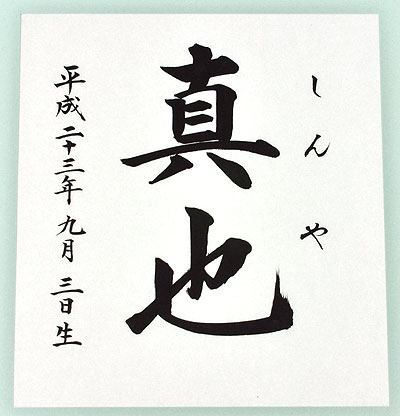 しんや
真也
平成二十三年九月三日生